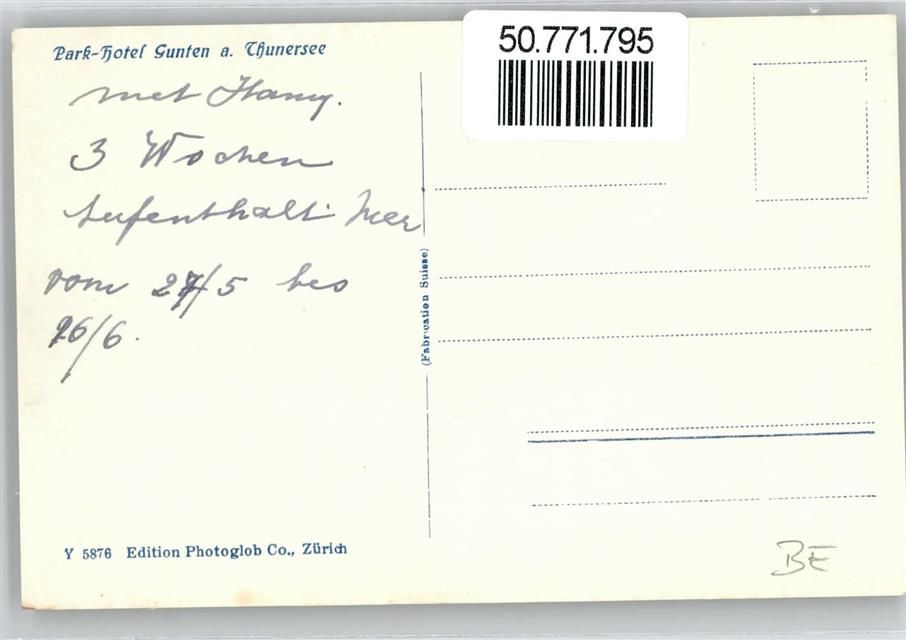 Park-Hotel Gunten a. Thunersee
50.771.795
met Hamy.
3 Wochen
Aufenthalt hier
vom 27/5 bis
16/6.
(Fabrication Suisse)
Y 5876 Edition Photoglob Co., Zürich
BE